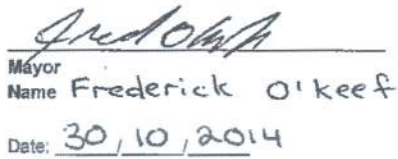 Mayor
Name Frederick O'Keef
Date: 30/10/2014